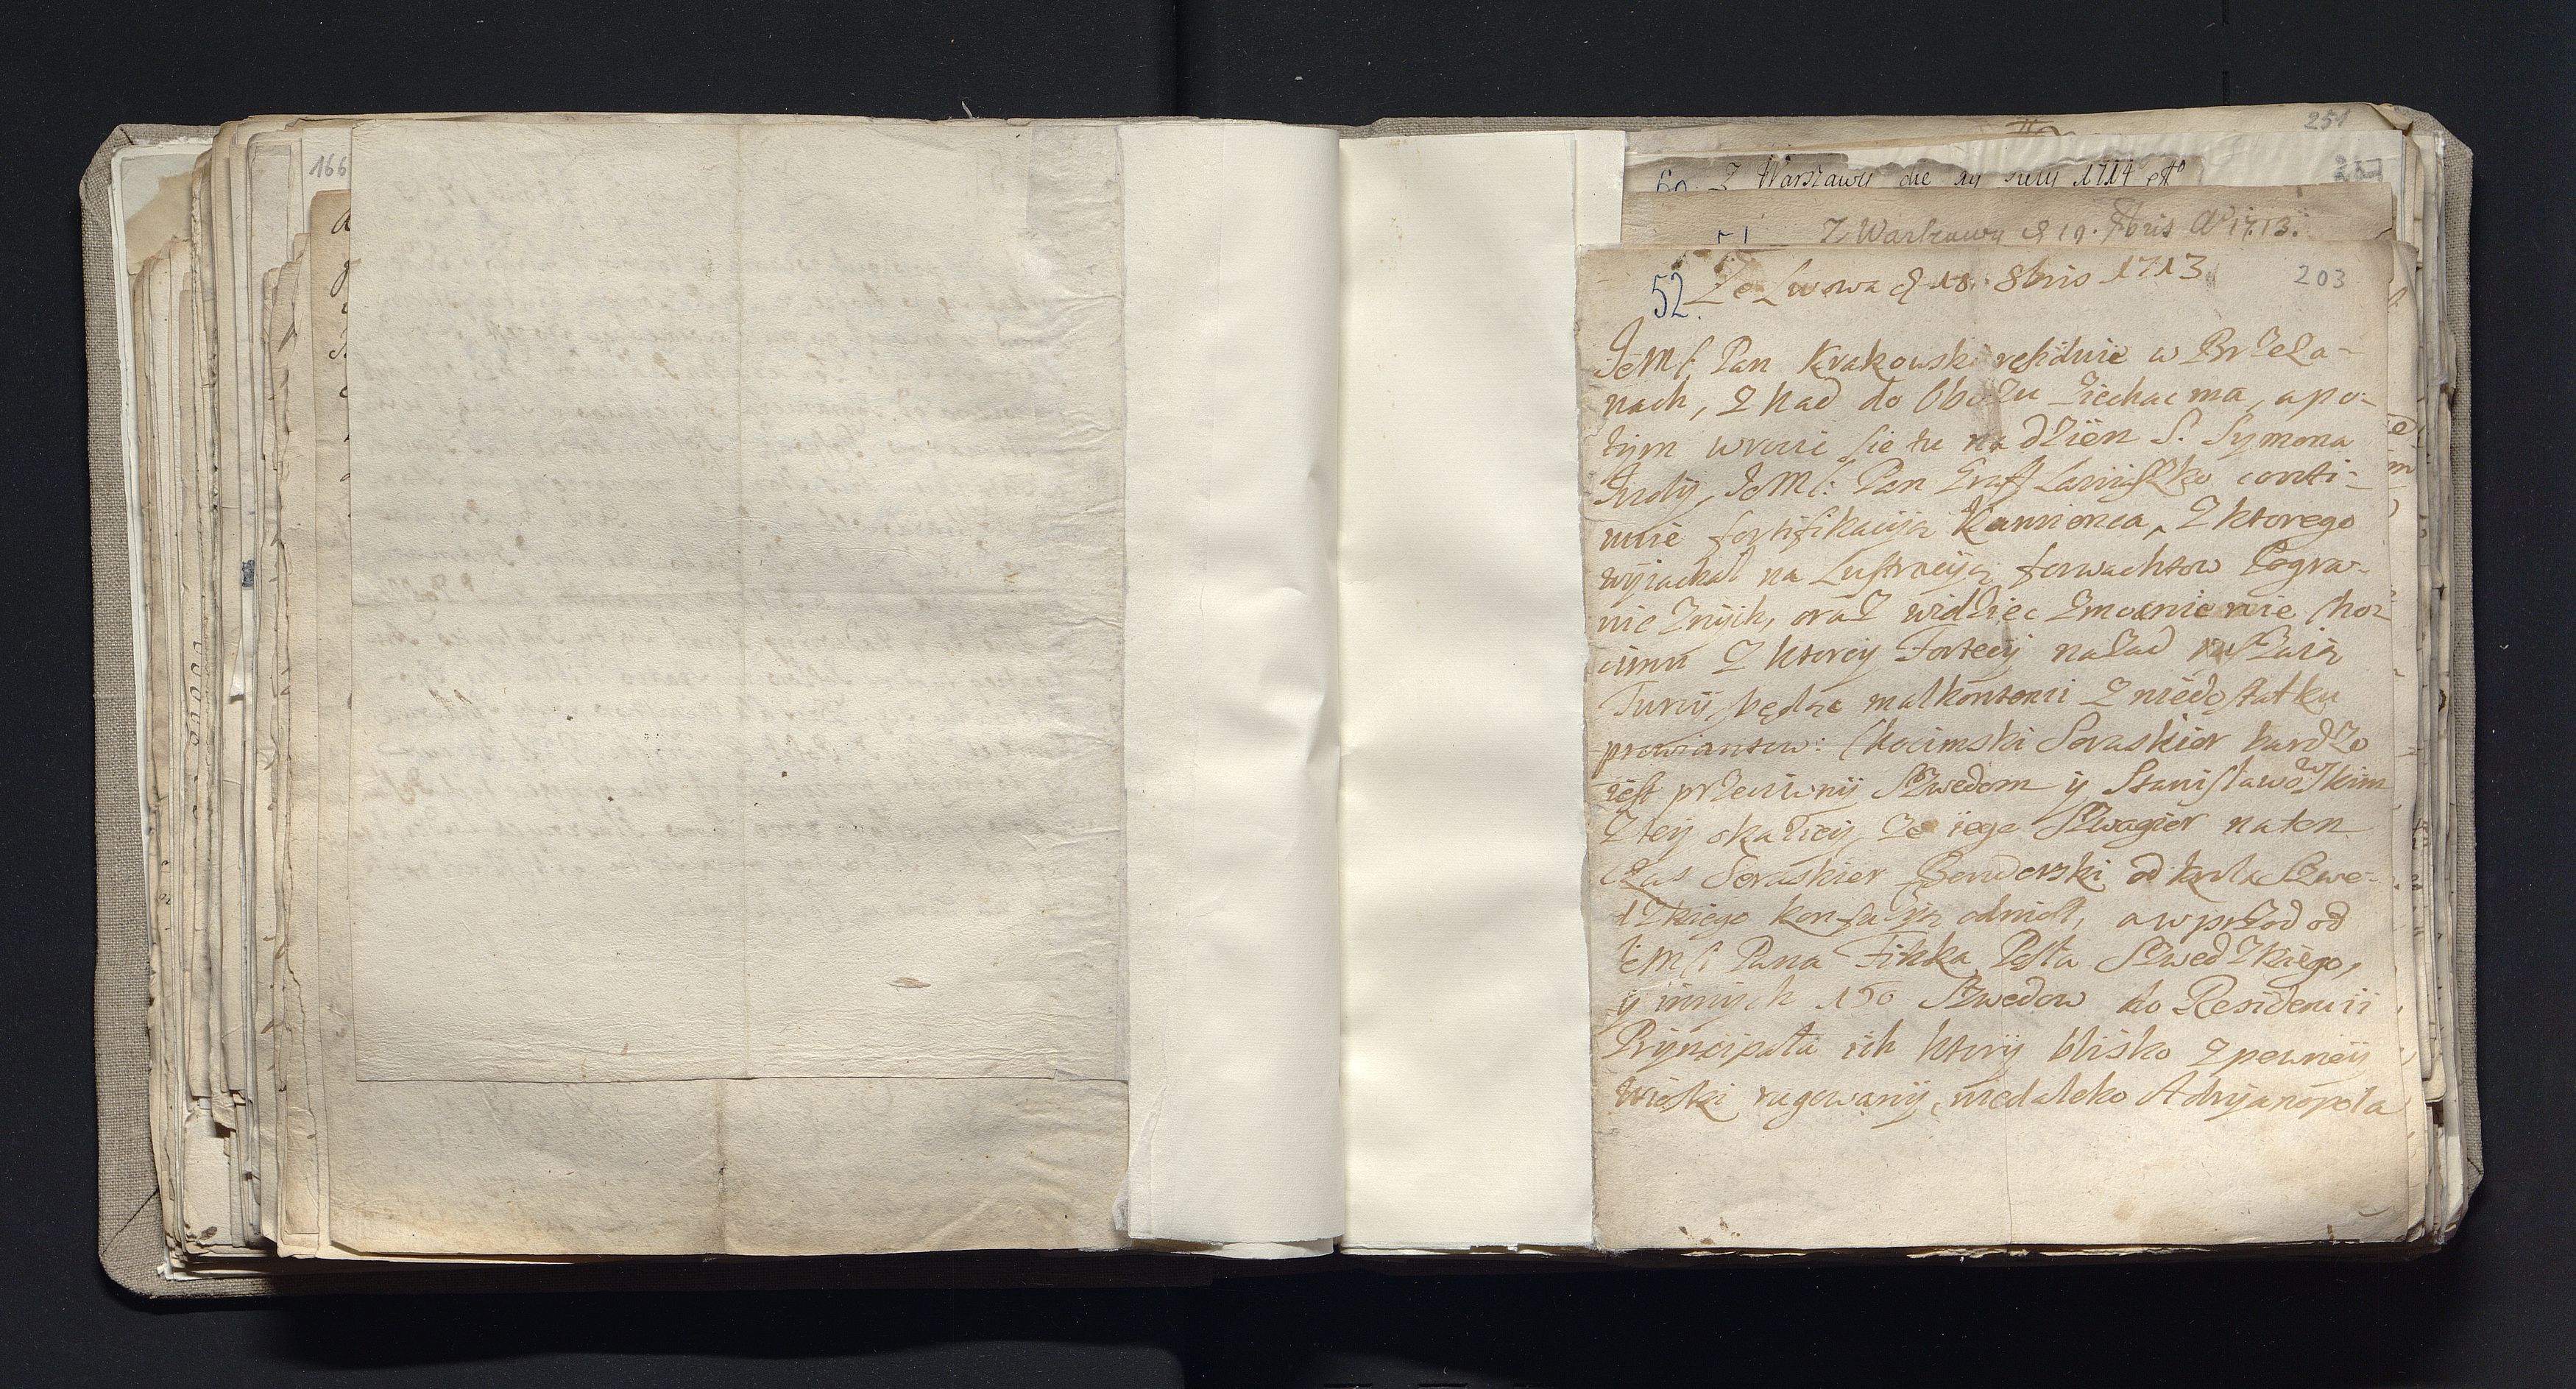 166
251
60. Z Warszawy die
1714
Z Warszawy d 19. 7bris Aº 1713.
52. Ze Lwowa d 18. 8bris 1713
203
JeMć Pan Krakowski residuie w Brzeża-
nach, z kąd do Obozu ziechac ma, a po-
tym wroci sie tu na dzień S. Symona
Judy, JeMć: Pan Graff Lamiaszko conti-
nuie fortifikacyią Kamienca, z ktorego
wyiachał na Lustracyią forwachtow Pogra-
nicznych, oraz widziec zmocnienie Cho-
cimu z ktorey Fortecy nazad ruszaią
Turcy, będąc malkontenci z niedostatku
prowiantow: Chocimski Seraskier bardzo
iest przeciwny Szwedom y Stanisławowskim
z tey okaziey, że iego Szwagier na ten
czas Seraskier Benderski od krola Szwe-
dzkiego konfuzyią odniosł, a wprzod od
JeMć Pana Finka Posła Szwedzkiego,
y innych 150 Szwedow do Residencii
Pryncipała ich ktory blisko z pewney
wioski rugowany, niedaleko Adryanopola